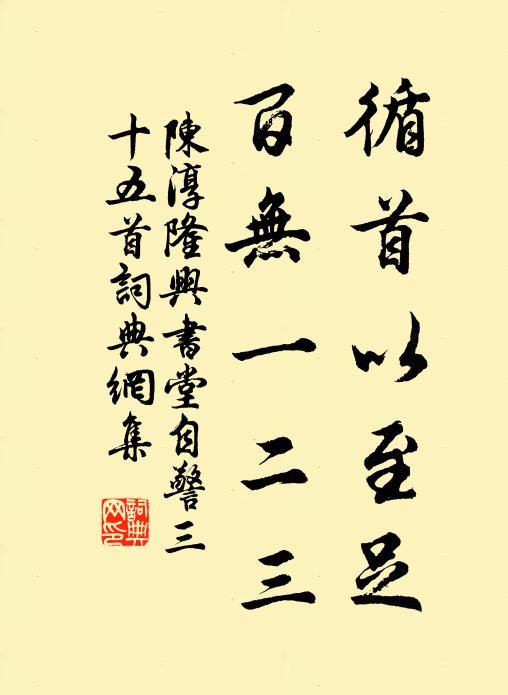 循首以至足
百無一二三
陳淳隆興書堂自警三
十五首詞典網集
詞典網印